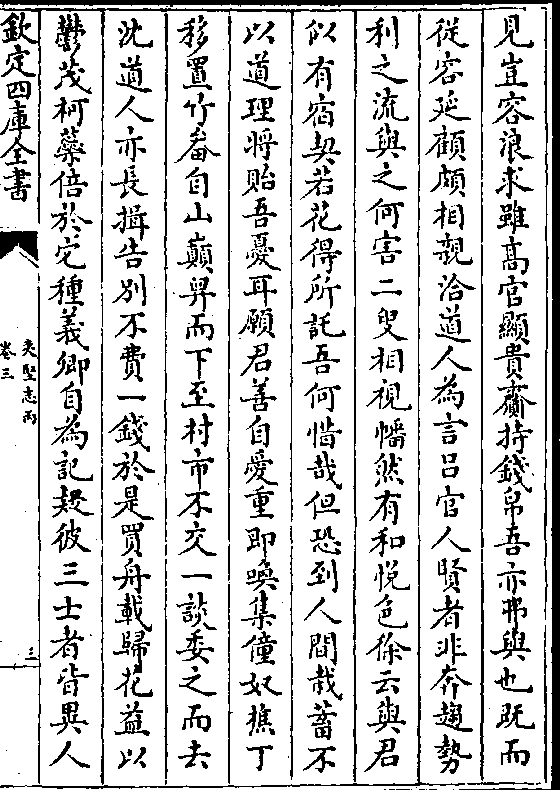 見豈容浪求雖髙官顯貴齎持錢帛吾亦弗與也既而
從容延顧頗相親洽道人為言吕官人賢者非奔趨勢
利之流與之何害二叟相視幡然有和悦色徐云與君
似有宿契若花得所託吾何惜哉但恐到人間栽蓄不
以道理將貽吾憂耳願君善自愛重即喚集僮奴樵丁
移置竹畚自山巔舁而下至村市不交一談委之而去
沈道人亦長揖告别不費一錢於是買舟載歸花益以
鬱茂柯蘂倍於它種義卿自為記疑彼三士者皆異人
欽定四庫全書
夷堅志丙
卷三
三